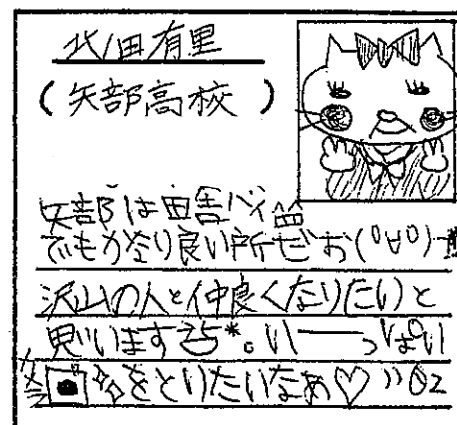 北田有里
(矢部高校)
矢部は田舎バイ
でもかなり良い所ぜお(°∀°)
沢山の人と仲良くなりたいと
思います*。いーっぱい
をとりたいなぁ♡"